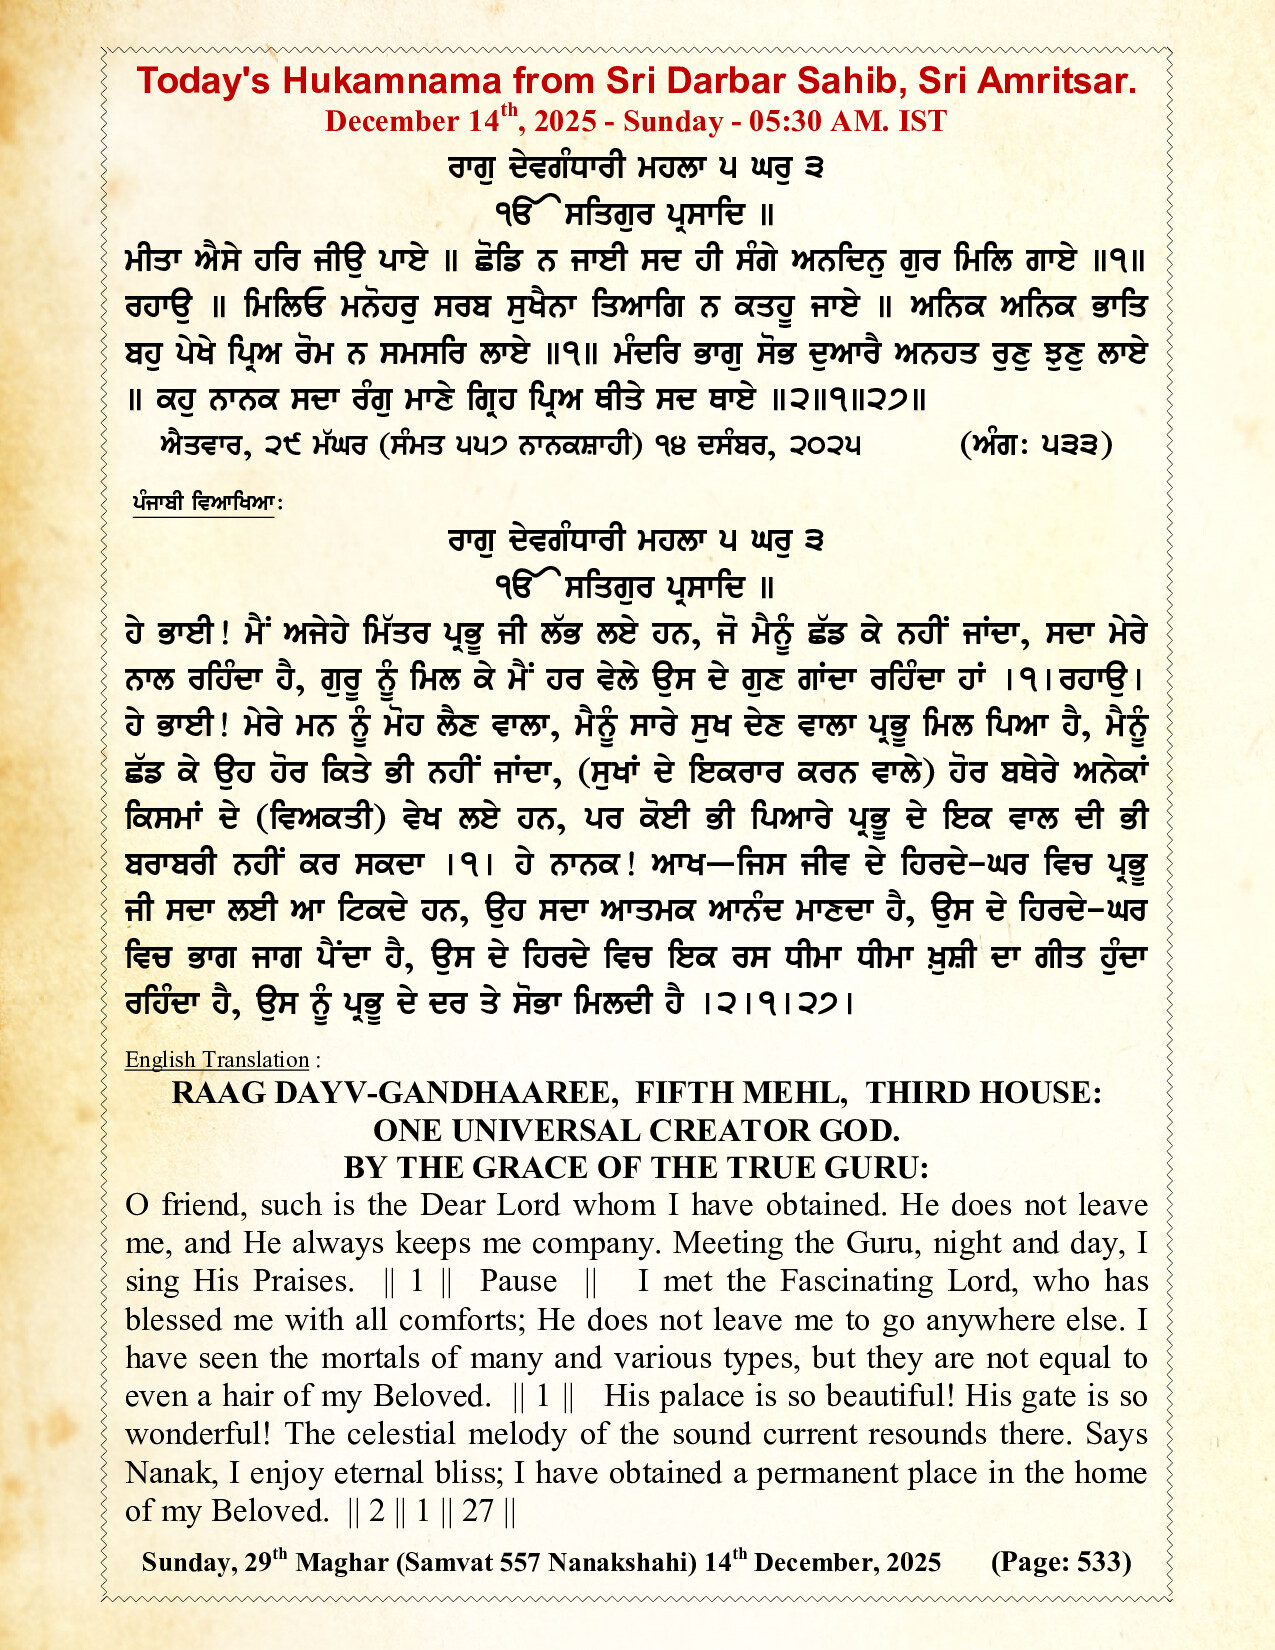 Today's Hukamnama from Sri Darbar Sahib, Sri Amritsar.
December 14th, 2025 - Sunday - 05:30 AM. IST
ਰਾਗੁ ਦੇਵਗੰਧਾਰੀ ਮਹਲਾ ੫ ਘਰੁ ੩
ੴ ਸਤਿਗੁਰ ਪ੍ਰਸਾਦਿ ॥
ਮੀਤਾ ਐਸੇ ਹਰਿ ਜੀਉ ਪਾਏ ॥ ਛੋਡਿ ਨ ਜਾਈ ਸਦ ਹੀ ਸੰਗੇ ਅਨਦਿਨੁ ਗੁਰ ਮਿਲਿ ਗਾਏ ॥੧॥
ਰਹਾਉ ॥ ਮਿਲਿਓ ਮਨੋਹਰੁ ਸਰਬ ਸੁਖੈਨਾ ਤਿਆਗਿ ਨ ਕਤਹੂ ਜਾਏ ॥ ਅਨਿਕ ਅਨਿਕ ਭਾਤਿ
ਬਹੁ ਪੇਖੇ ਪ੍ਰਿਅ ਰੋਮ ਨ ਸਮਸਰਿ ਲਾਏ ॥੧॥ ਮੰਦਰਿ ਭਾਗੁ ਸੋਭ ਦੁਆਰੈ ਅਨਹਤ ਰੁਣੁ ਝੁਣੁ ਲਾਏ
॥ ਕਹੁ ਨਾਨਕ ਸਦਾ ਰੰਗੁ ਮਾਣੇ ਗ੍ਰਿਹ ਪ੍ਰਿਅ ਥੀਤੇ ਸਦ ਥਾਏ ॥੨॥੧॥੨੭॥
ਐਤਵਾਰ, ੨੯ ਮੱਘਰ (ਸੰਮਤ ੫੫੭ ਨਾਨਕਸ਼ਾਹੀ) ੧੪ ਦਸੰਬਰ, ੨੦੨੫ (ਅੰਗ: ੫੩੩)
ਪੰਜਾਬੀ ਵਿਆਖਿਆ:
ਰਾਗੁ ਦੇਵਗੰਧਾਰੀ ਮਹਲਾ ੫ ਘਰੁ ੩
ੴ ਸਤਿਗੁਰ ਪ੍ਰਸਾਦਿ ॥
ਹੇ ਭਾਈ! ਮੈਂ ਅਜੇਹੇ ਮਿੱਤਰ ਪ੍ਰਭੂ ਜੀ ਲੱਭ ਲਏ ਹਨ, ਜੋ ਮੈਨੂੰ ਛੱਡ ਕੇ ਨਹੀਂ ਜਾਂਦਾ, ਸਦਾ ਮੇਰੇ
ਨਾਲ ਰਹਿੰਦਾ ਹੈ, ਗੁਰੂ ਨੂੰ ਮਿਲ ਕੇ ਮੈਂ ਹਰ ਵੇਲੇ ਉਸ ਦੇ ਗੁਣ ਗਾਂਦਾ ਰਹਿੰਦਾ ਹਾਂ ।੧।ਰਹਾਉ।
ਹੇ ਭਾਈ! ਮੇਰੇ ਮਨ ਨੂੰ ਮੋਹ ਲੈਣ ਵਾਲਾ, ਮੈਨੂੰ ਸਾਰੇ ਸੁਖ ਦੇਣ ਵਾਲਾ ਪ੍ਰਭੂ ਮਿਲ ਪਿਆ ਹੈ, ਮੈਨੂੰ
ਛੱਡ ਕੇ ਉਹ ਹੋਰ ਕਿਤੇ ਭੀ ਨਹੀਂ ਜਾਂਦਾ, (ਸੁਖਾਂ ਦੇ ਇਕਰਾਰ ਕਰਨ ਵਾਲੇ) ਹੋਰ ਬਥੇਰੇ ਅਨੇਕਾਂ
ਕਿਸਮਾਂ ਦੇ (ਵਿਅਕਤੀ) ਵੇਖ ਲਏ ਹਨ, ਪਰ ਕੋਈ ਭੀ ਪਿਆਰੇ ਪ੍ਰਭੂ ਦੇ ਇਕ ਵਾਲ ਦੀ ਭੀ
ਬਰਾਬਰੀ ਨਹੀਂ ਕਰ ਸਕਦਾ ।੧। ਹੇ ਨਾਨਕ! ਆਖ—ਜਿਸ ਜੀਵ ਦੇ ਹਿਰਦੇ-ਘਰ ਵਿਚ ਪ੍ਰਭੂ
ਜੀ ਸਦਾ ਲਈ ਆ ਟਿਕਦੇ ਹਨ, ਉਹ ਸਦਾ ਆਤਮਕ ਆਨੰਦ ਮਾਣਦਾ ਹੈ, ਉਸ ਦੇ ਹਿਰਦੇ-ਘਰ
ਵਿਚ ਭਾਗ ਜਾਗ ਪੈਂਦਾ ਹੈ, ਉਸ ਦੇ ਹਿਰਦੇ ਵਿਚ ਇਕ ਰਸ ਧੀਮਾ ਧੀਮਾ ਖ਼ੁਸ਼ੀ ਦਾ ਗੀਤ ਹੁੰਦਾ
ਰਹਿੰਦਾ ਹੈ, ਉਸ ਨੂੰ ਪ੍ਰਭੂ ਦੇ ਦਰ ਤੇ ਸੋਭਾ ਮਿਲਦੀ ਹੈ ।੨।੧।੨੭।
English Translation :
RAAG DAYV-GANDHAAREE, FIFTH MEHL, THIRD HOUSE:
ONE UNIVERSAL CREATOR GOD.
BY THE GRACE OF THE TRUE GURU:
O friend, such is the Dear Lord whom I have obtained. He does not leave
me, and He always keeps me company. Meeting the Guru, night and day, I
sing His Praises. || 1 || Pause || I met the Fascinating Lord, who has
blessed me with all comforts; He does not leave me to go anywhere else. I
have seen the mortals of many and various types, but they are not equal to
even a hair of my Beloved. || 1 || His palace is so beautiful! His gate is so
wonderful! The celestial melody of the sound current resounds there. Says
Nanak, I enjoy eternal bliss; I have obtained a permanent place in the home
of my Beloved. || 2 || 1 || 27 ||
Sunday, 29th Maghar (Samvat 557 Nanakshahi) 14th December, 2025 (Page: 533)